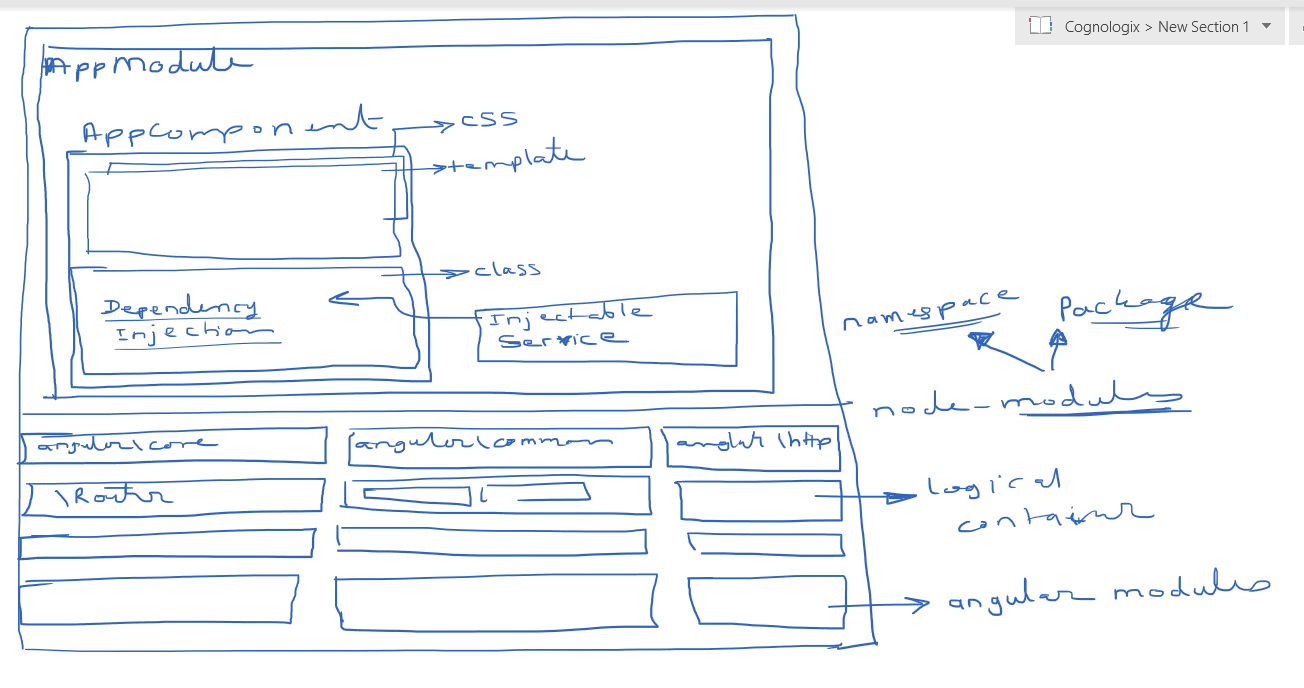 Cognologix > New Section 1
AppModule
AppComponent
css
template
class
Dependency
Injection
Injectable
Service
namespace
Package
node-modules
angular\core
angular\common
angular\http
\Router
Logical
container
angular modules